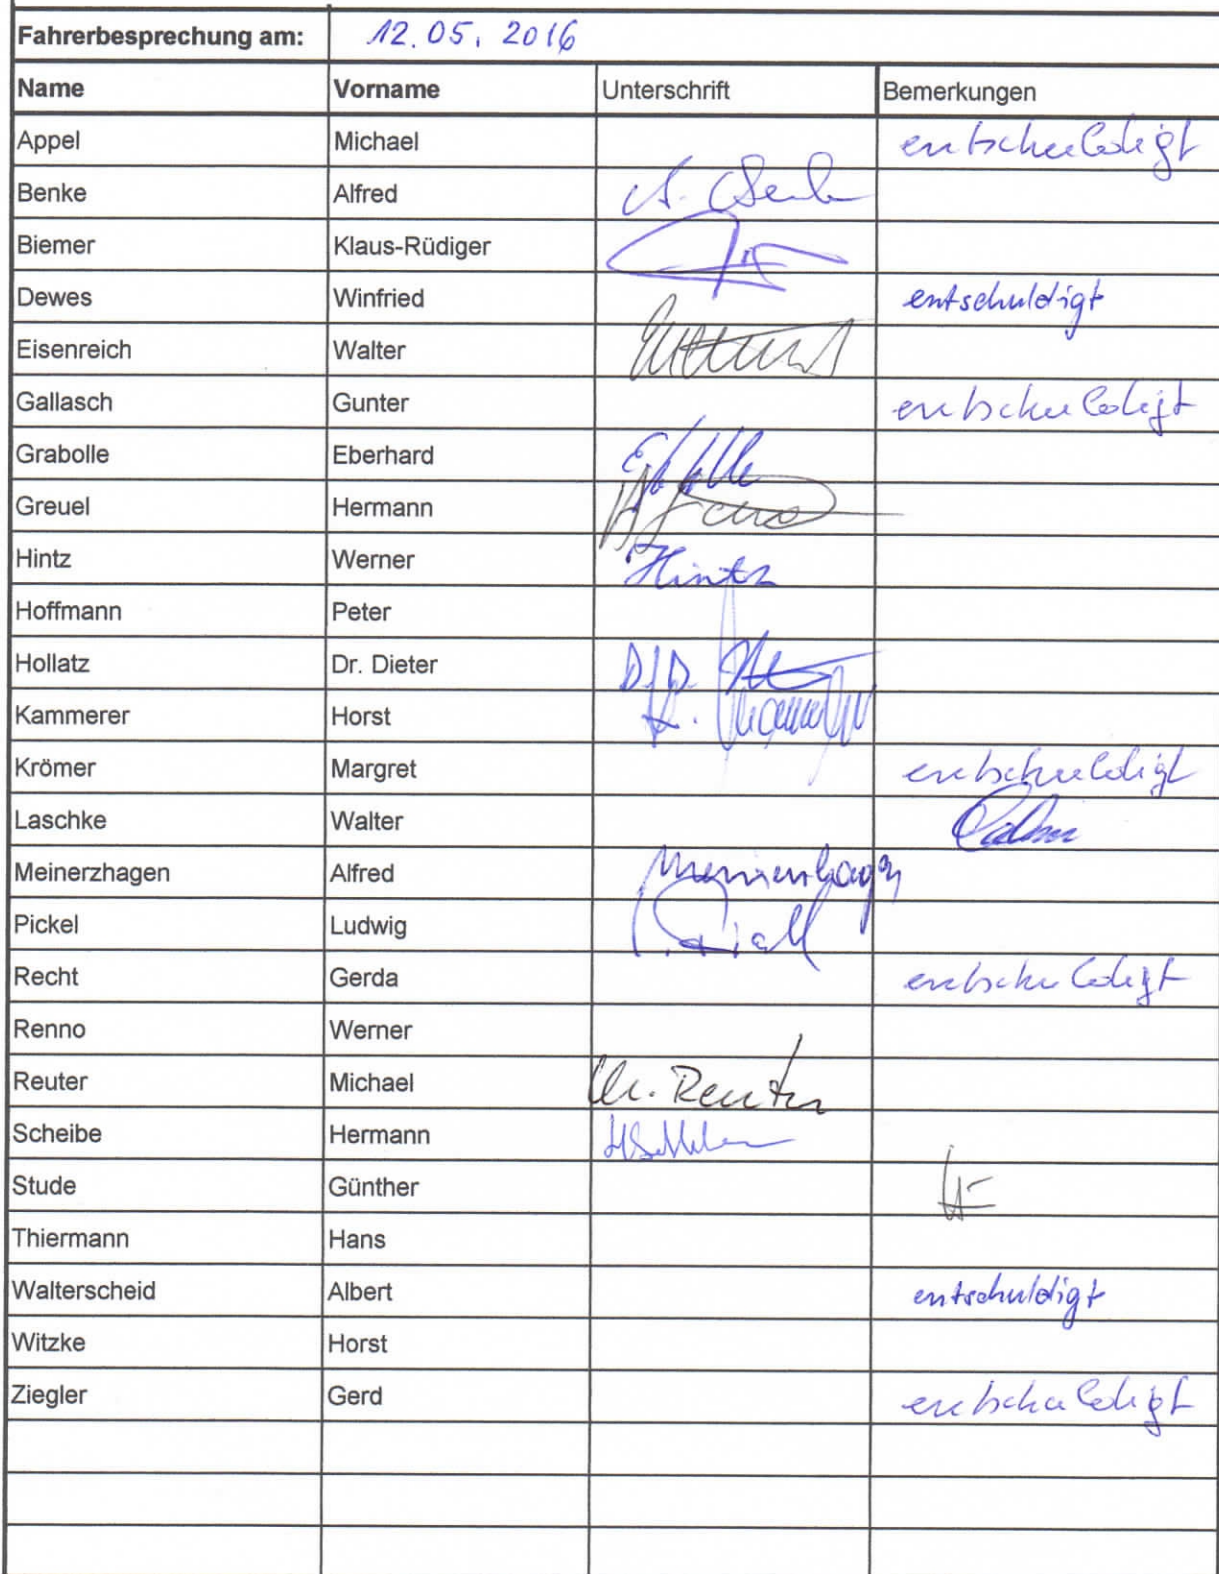 Fahrerbesprechung am: 12.05.2016
Name Vorname Unterschrift Bemerkungen
Appel Michael entschuldigt
Benke Alfred A. Benke
Biemer Klaus-Rüdiger
Dewes Winfried entschuldigt
Eisenreich Walter
Gallasch Gunter entschuldigt
Grabolle Eberhard
Greuel Hermann
Hintz Werner Hintz
Hoffmann Peter
Hollatz Dr. Dieter
Kammerer Horst
Krömer Margret entschuldigt
Laschke Walter
Meinerzhagen Alfred Meinerzhagen
Pickel Ludwig
Recht Gerda entschuldigt
Renno Werner
Reuter Michael M. Reuter
Scheibe Hermann
Stude Günther
Thiermann Hans
Walterscheid Albert entschuldigt
Witzke Horst
Ziegler Gerd entschuldigt